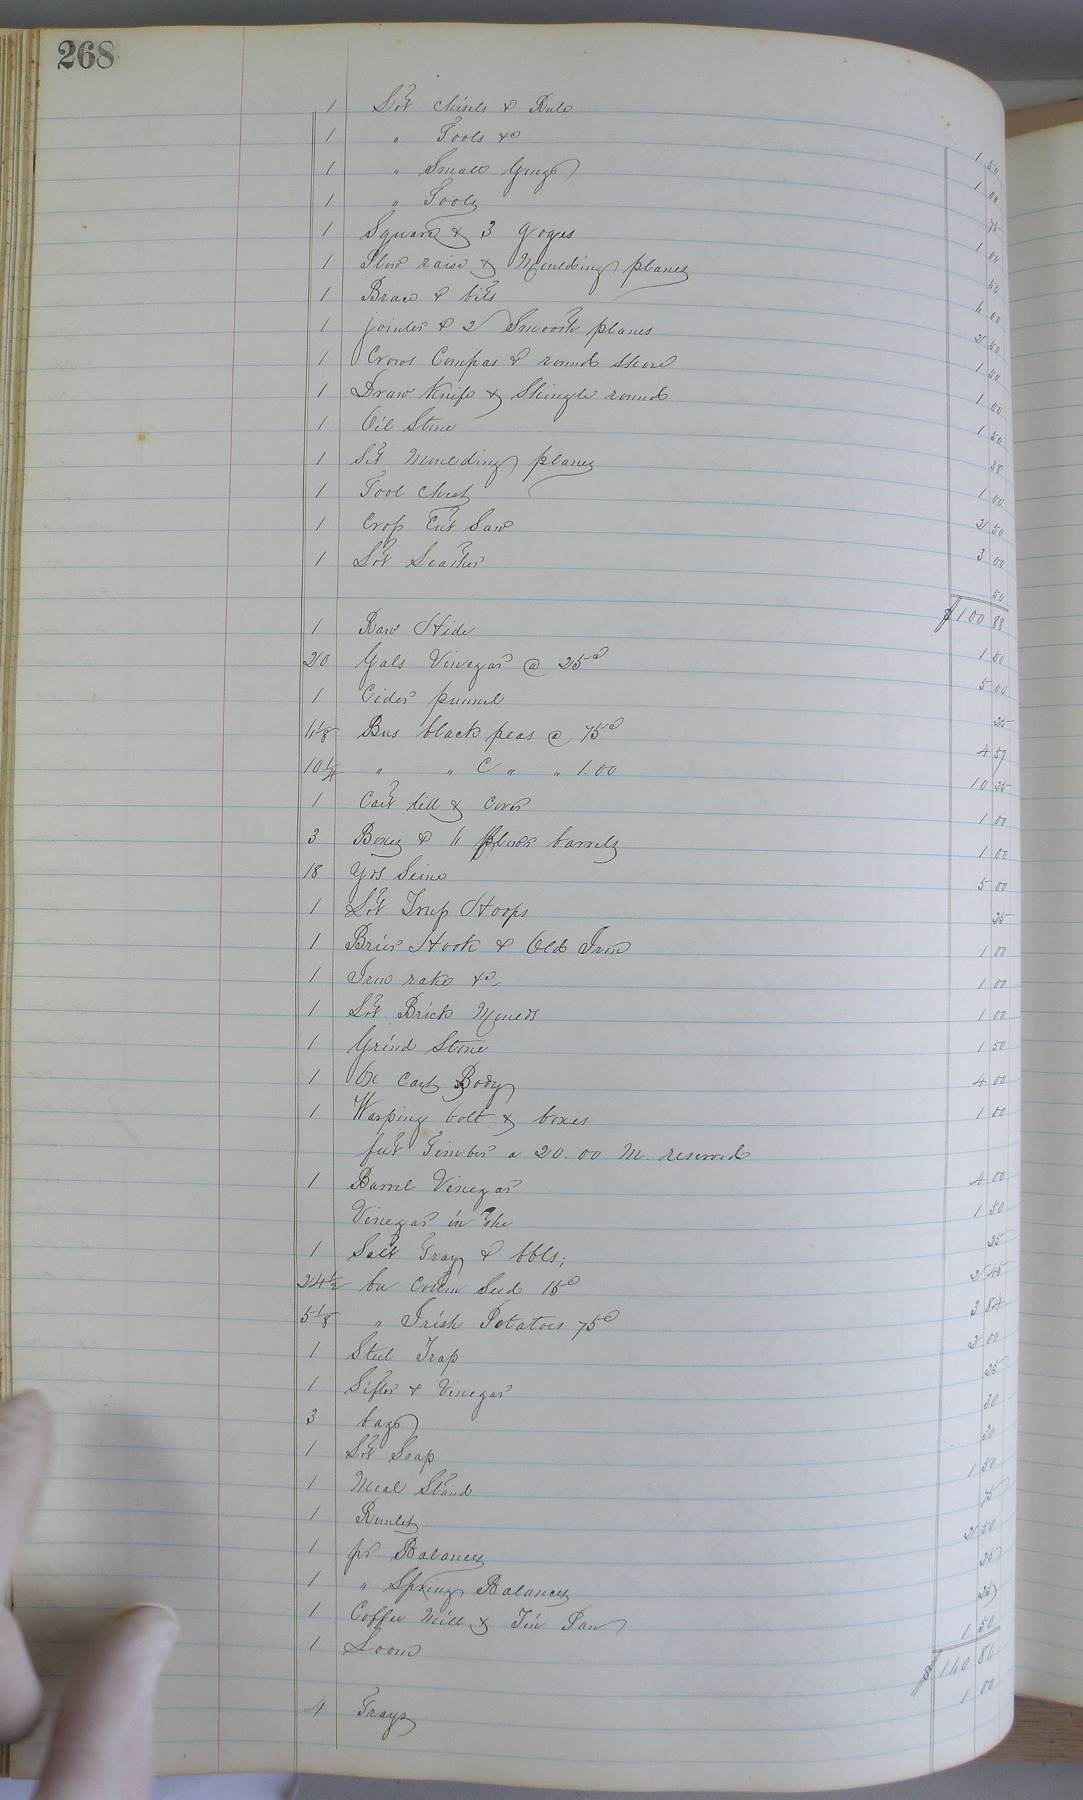 268
1 Lot Chisels & Rule 1 50
1 " Tools &c 1 00
1 " Small Guages 75
1 " Tools 1 00
1 Square & 3 goges 50
1 Plow raise & Moulding planes 4 00
1 Brace & bits 2 50
1 jointer & 2 Smooth planes 1 50
1 Crows Compas & round Shave 1 00
1 Draw Knife & Shingle round 1 50
1 Oil Stone 38
1 Set Moulding planes 1 00
1 Tool Chest 2 50
1 Crop Cut Saw 3 00
1 Lot Leather 50
$100 88
1 Raw Hide 1 50
20 Gals Vinegar @ 25c 5 00
1 Cider pummel 25
6 1/8 Bus black peas @ 75c 4 59
10 1/4 " " C " " 1.00 10 25
1 Cart bed & Cover 1 00
3 Boxes & 4 flour barrels 1 00
18 yds Seine 5 00
1 Lot Trup Hoops 25
1 Brier Hook & Old Iron 1 00
1 Iron rake &c 1 00
1 Lot Brick Moulds 1 00
1 Grind Stone 1 50
1 Ox Cart Body 4 00
1 Warping bolt & boxes 1 00
feet Timber a 20.00 M. reserved
1 Barrel Vinegar 4 00
Vinegar in the 1 50
1 Salt Tray & bbls; 25
24 1/2 bu Cotton Seed 15c 2 45
5 1/8 " Irish Potatoes 75c 3 84
1 Steel Trap 2 00
1 Sifter & Vinegar 25
3 bags 30
1 Lot Soap 20
1 Meal Stand 1 50
1 Runlet 75
1 pr Balances 2 50
1 " Spring Balances 25
1 Coffee Mill & Tin Pan 25
1 Loom 1 50
$140 84
4 Trays 1 00